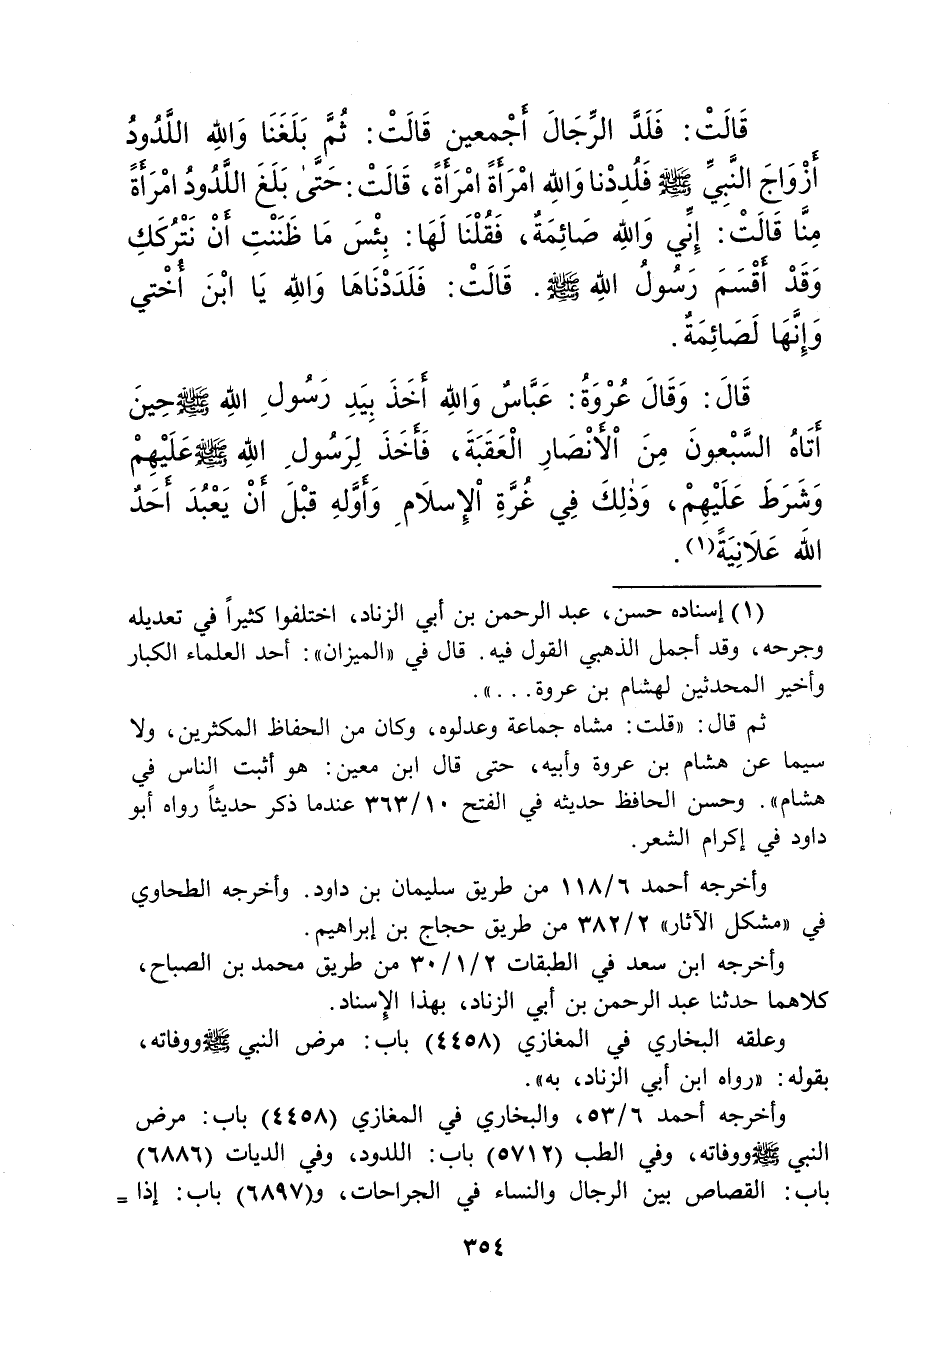 قَالَتْ: فَلَدَّ الرِّجَالَ أَجْمعين قَالَتْ: ثُمَّ بَلَغَنَا وَاللهِ اللَّدُودُ
أَزْوَاجَ النَّبِيِّ ﷺ فَلُدِدْنا وَاللهِ امْرَأَةً امْرَأَةً، قَالَتْ: حَتَّىٰ بَلَغَ اللَّدُودُ امْرَأَةً
مِنَّا قَالَتْ: إِنِّي وَاللهِ صَائِمَةٌ، فَقُلْنَا لَهَا: بِئْسَ مَا ظَنَنْتِ أَنْ نَتْرُكَكِ
وَقَدْ أَقْسَمَ رَسُولُ اللهِ ﷺ. قَالَتْ: فَلَدَدْنَاهَا وَاللهِ يَا ابْنَ أُخْتي
وَإِنَّهَا لَصَائِمَةٌ.
قَالَ: وَقَالَ عُرْوَةُ: عَبَّاسٌ وَاللهِ أَخَذَ بِيَدِ رَسُولِ اللهِ ﷺ حِينَ
أَتَاهُ السَّبْعونَ مِنَ الْأَنْصَارِ الْعَقَبَةَ، فَأَخَذَ لِرَسُولِ اللهِ ﷺ عَلَيْهِمْ
وَشَرَطَ عَلَيْهِمْ، وَذٰلِكَ فِي غُرَّةِ الْإِسلَامِ وَأَوَّلهِ قبْلَ أَنْ يَعْبُدَ أَحَدٌ
اللهَ عَلَانِيَةً(١).
(١) إسناده حسن، عبد الرحمن بن أبي الزناد، اختلفوا كثيراً في تعديله
وجرحه، وقد أجمل الذهبي القول فيه. قال في «الميزان»: أحد العلماء الكبار
وأخير المحدثين لهشام بن عروة...».
ثم قال: «قلت: مشاه جماعة وعدلوه، وكان من الحفاظ المكثرين، ولا
سيما عن هشام بن عروة وأبيه، حتى قال ابن معين: هو أثبت الناس في
هشام». وحسن الحافظ حديثه في الفتح ٣٦٣/١٠ عندما ذكر حديثاً رواه أبو
داود في إكرام الشعر.
وأخرجه أحمد ١١٨/٦ من طريق سليمان بن داود. وأخرجه الطحاوي
في «مشكل الآثار» ٣٨٢/٢ من طريق حجاج بن إبراهيم.
وأخرجه ابن سعد في الطبقات ٣٠/١/٢ من طريق محمد بن الصباح،
كلاهما حدثنا عبد الرحمن بن أبي الزناد، بهذا الإسناد.
وعلقه البخاري في المغازي (٤٤٥٨) باب: مرض النبي ﷺ ووفاته،
بقوله: «رواه ابن أبي الزناد، به».
وأخرجه أحمد ٥٣/٦، والبخاري في المغازي (٤٤٥٨) باب: مرض
النبي ﷺ ووفاته، وفي الطب (٥٧١٢) باب: اللدود، وفي الديات (٦٨٨٦)
باب: القصاص بين الرجال والنساء في الجراحات، و(٦٨٩٧) باب: إذا =
٣٥٤